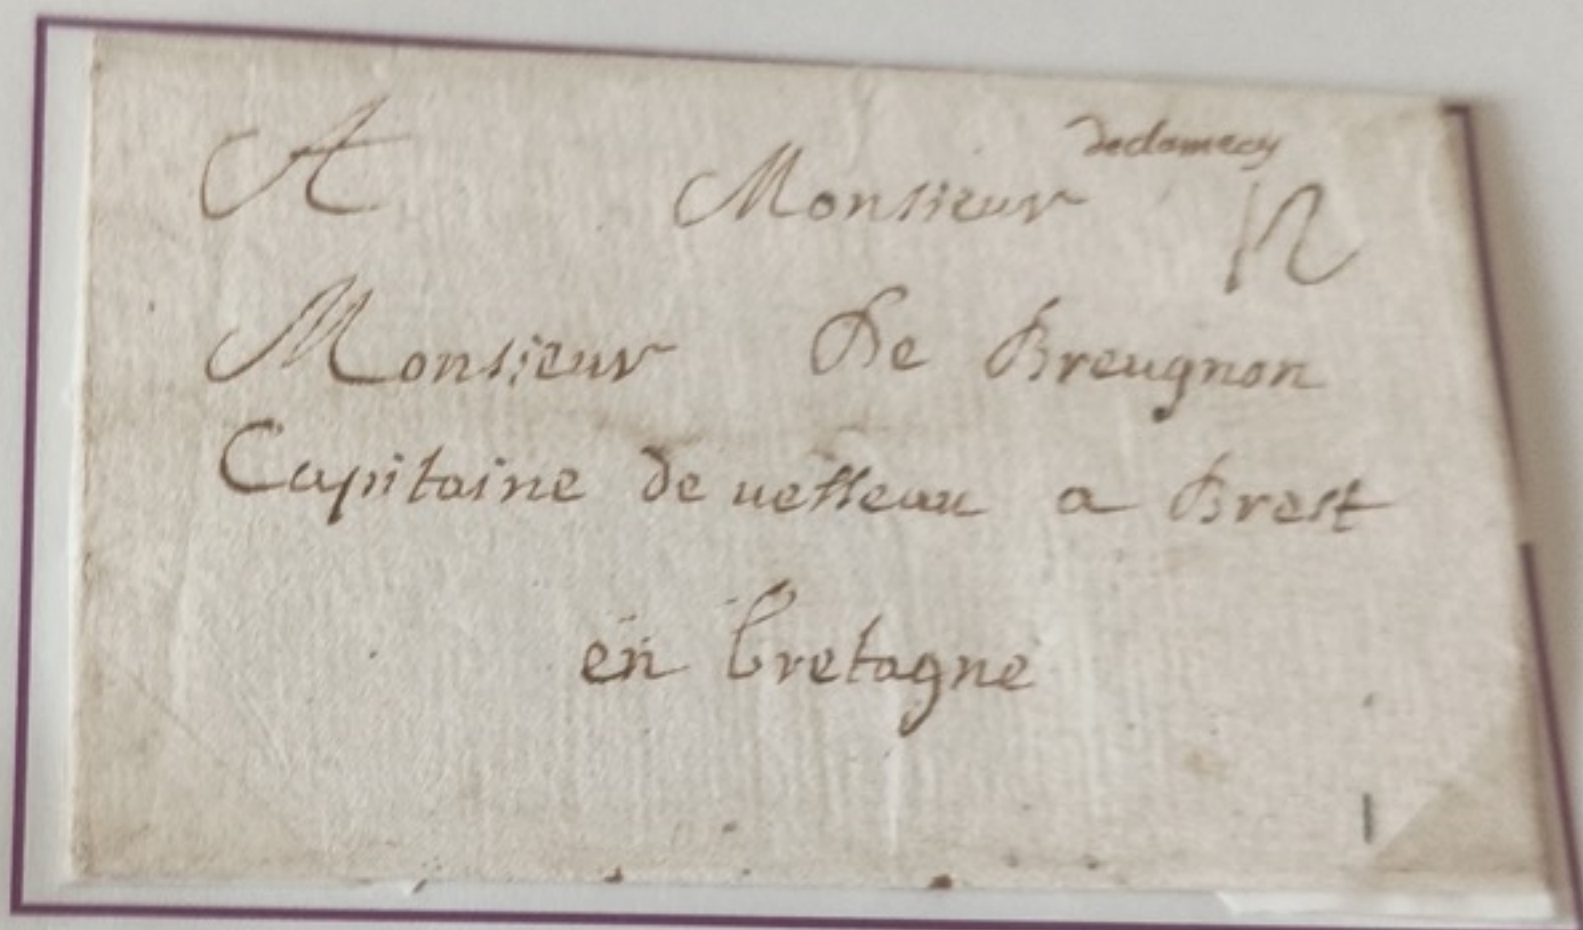 declamecy
A Monsieur
12
Monsieur De Breugnon
Capitaine de vesseau a Brest
en bretagne